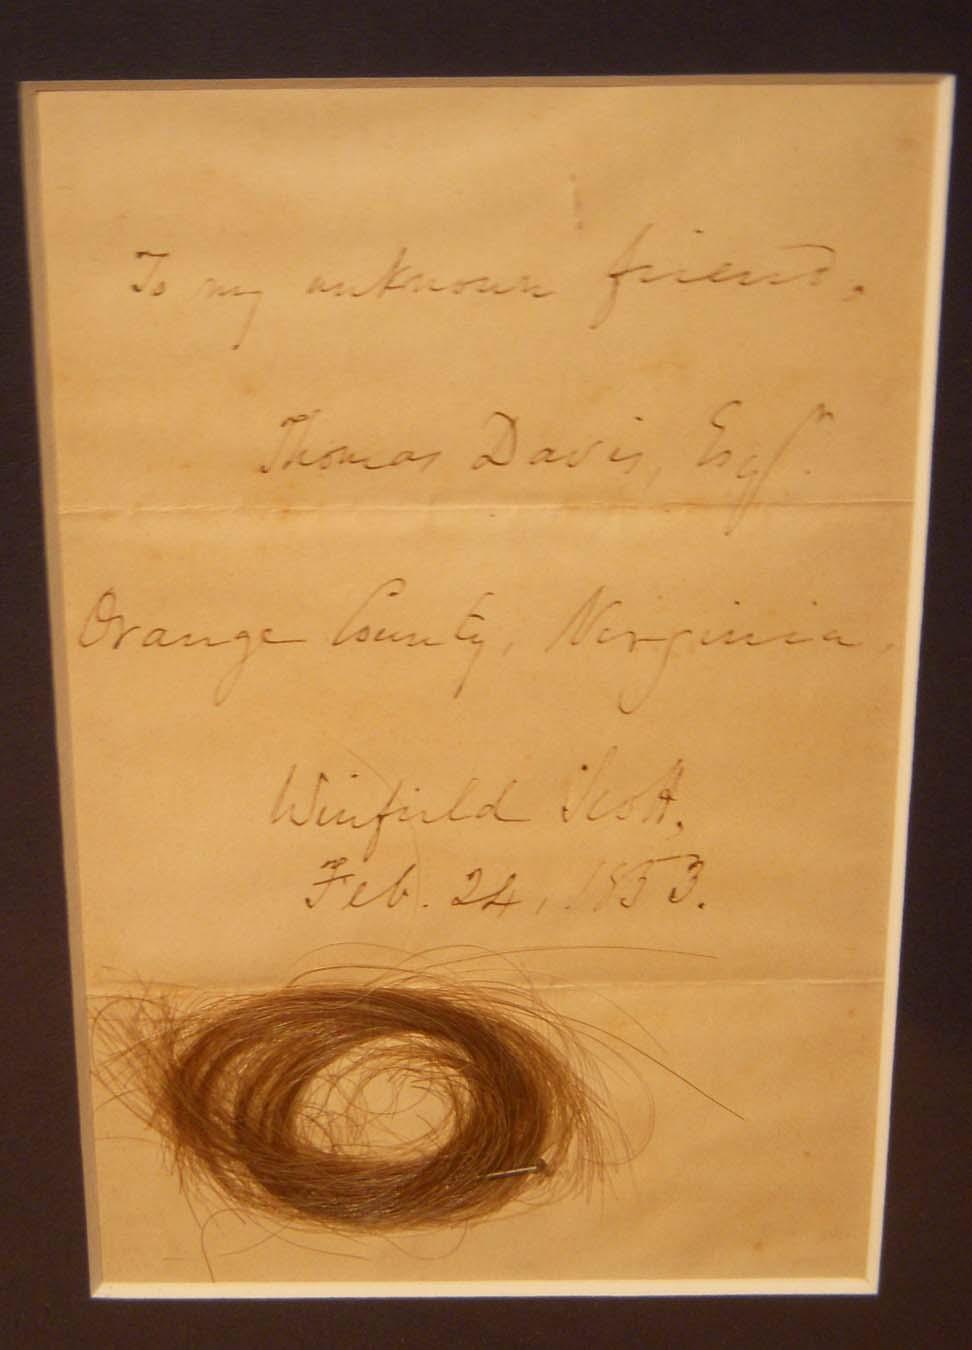 To my unknown friend,
Thomas Davis, Esqr.
Orange County, Virginia,
Winfield Scott,
Feb. 24, 1853.